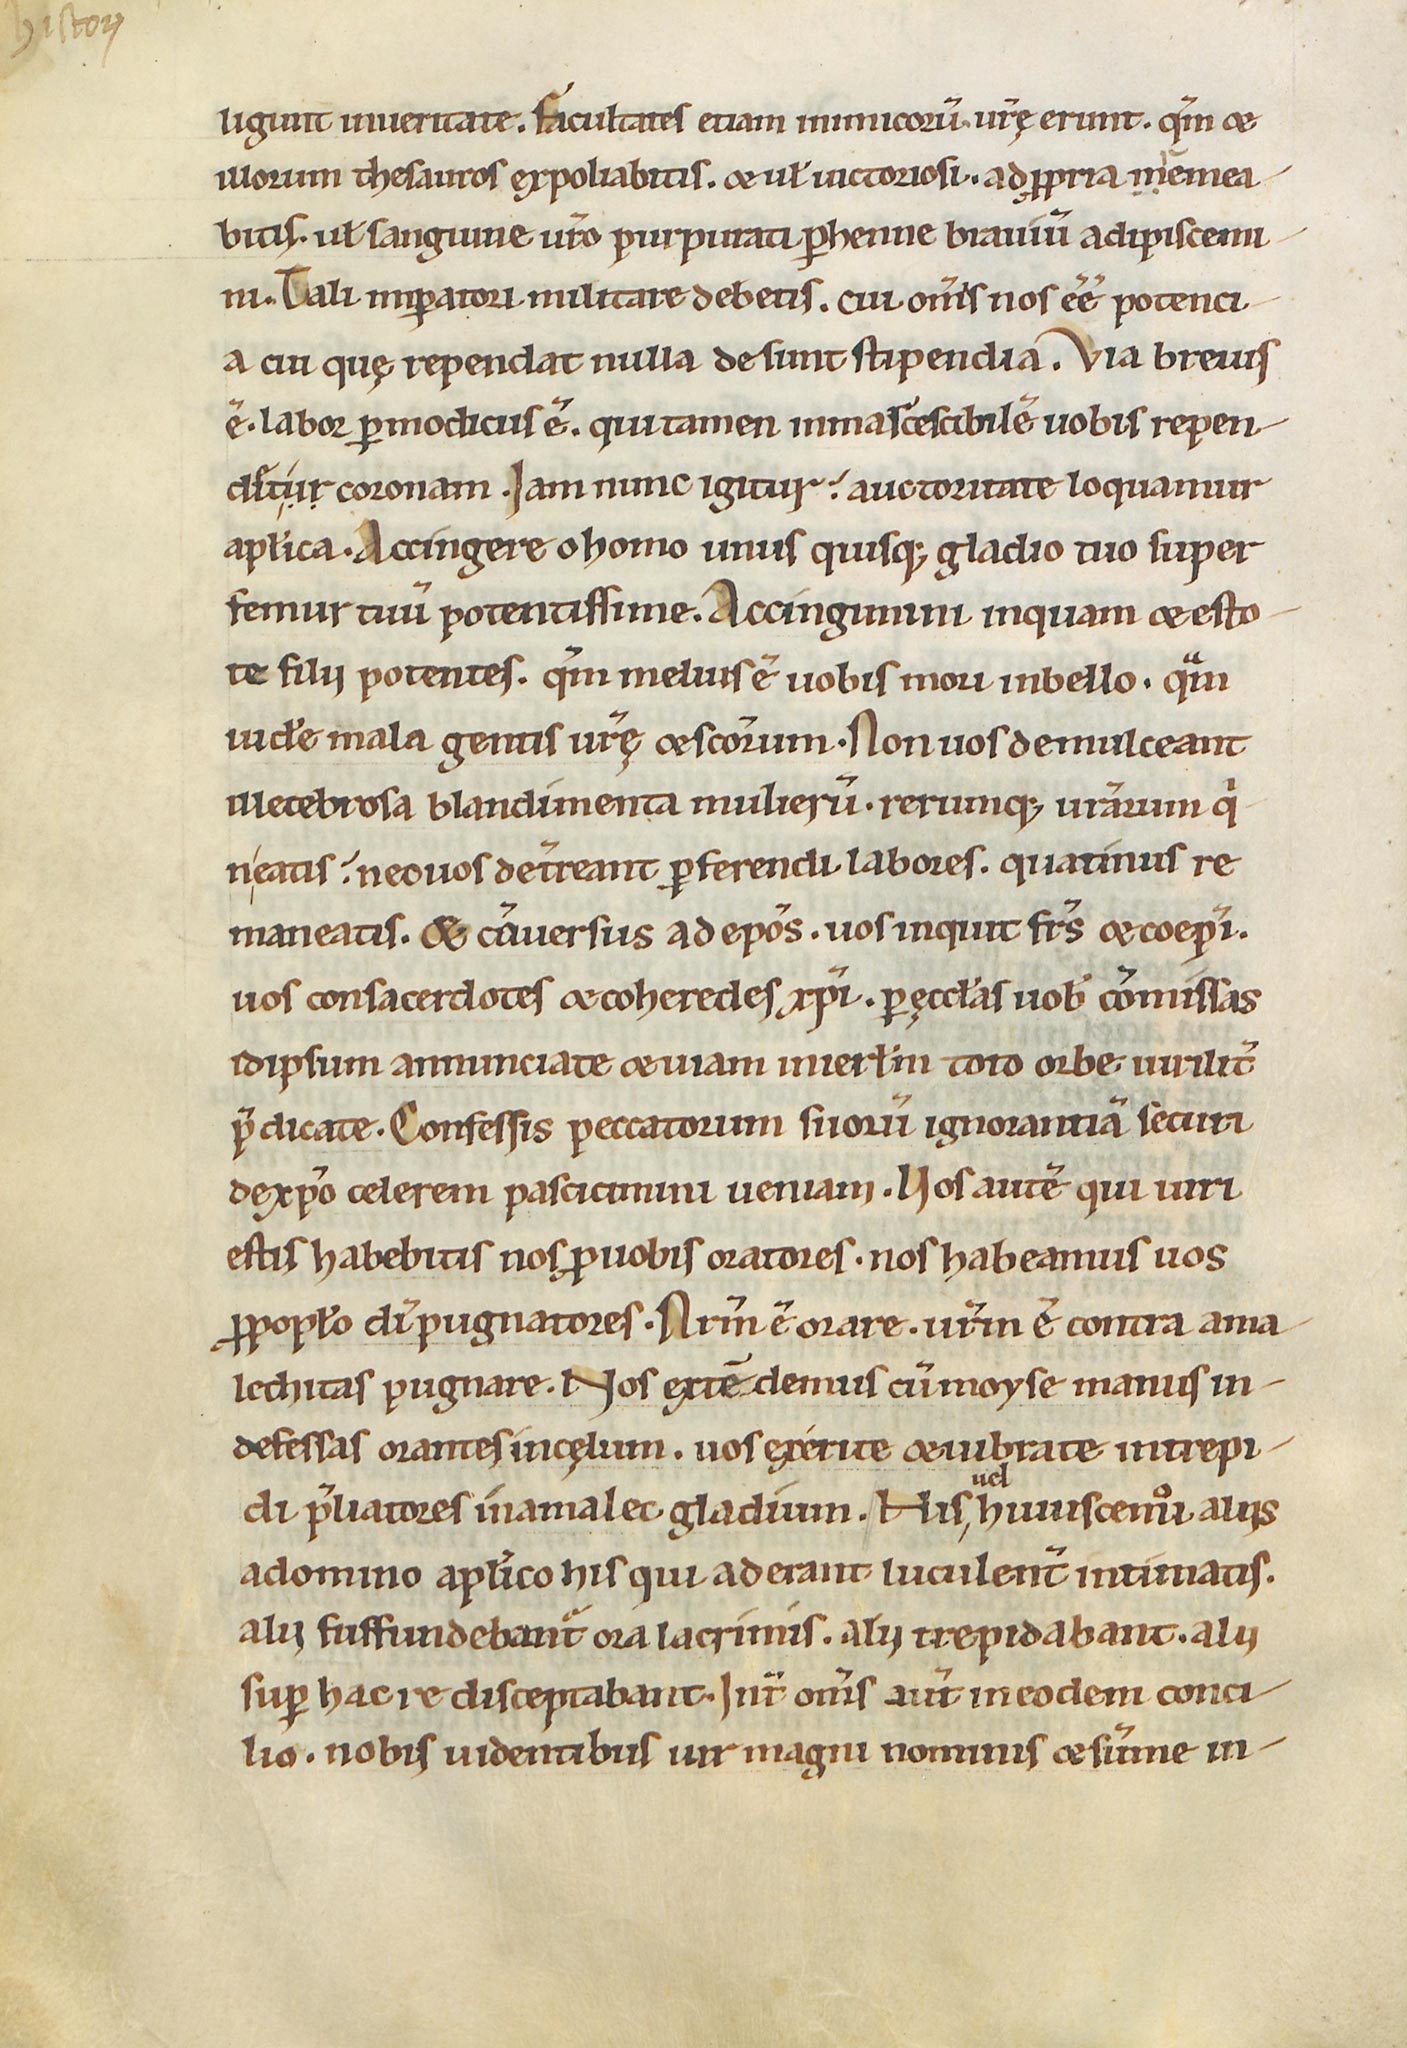 histor̄
ligunt inueritate. Facultates etiam inimicorū. ur̄ę erunt. qm̄ &
illorum thesauros expoliabitis. & ul̄ uictoriosi. ad ꝓpria remea-
bitis. ul̄ sanguine ur̄o purpurati ꝑhenne brauiū adipiscemi-
ni. Tali imꝑatori militare debetis. cui om̄is nos ēē potenci-
a cui quę rependat nulla desunt stipendia. Via breuis
ē. labor ꝑmodicus ē. qui tamen inmascescibilē uobis repen-
ditur coronam. Iam nunc igitur. auctoritate loquamur
apl̄ica. Accingere o homo unus quisq; gladio tuo super
femur tuū potentissime. Accingimini inquam & esto-
te filii potentes. qm̄ melius ē uobis mori inbello. quam
uidēe mala gentis ur̄ę & sc̄orum. Non uos demulceant
illecebrosa blandimenta mulierū. rerumq; ur̄arum qi-
neatis. nec uos det̄reant ꝑferendi labores. quatinus re
maneatis. & c̄uersus ad ep̄os. uos inquit fr̄s & coep̄i.
uos consacerdotes & coheredes xp̄i. ꝑ ęccl̄as uob̄ cōmissas
idipsum annunciate & uiam inierl̄m toto orbe uirilit̄
p̄dicate. Confessis peccatorum suorū ignorantiā securi
dexp̄o celerem pasciscimini ueniam. Vos autē qui ituri
estis habebitis nos ꝓ uobis oratores. nos habeamus uos
ꝓ popl̄o di̅ pugnatores. Nr̄m ē orare. ur̄m ē contra ama
lechitas pugnare. Nos extēdemus cū moyse manus in-
defessas orantes incęlum. uos exerite & uibrate intrepi-
di p̄liatores inamalec gladium. His, uel huiuscemoi aliis
adomino apl̄ico his qui aderant luculent̄ intimatis.
alii suffundebant̄ ora lacrimis. alii trepidabant. alii
suꝑ hac re disceptabant. Int̄ om̄is aut̄ ineodem conci-
lio. nobis uidentibus uir magni nominis & sūme in-